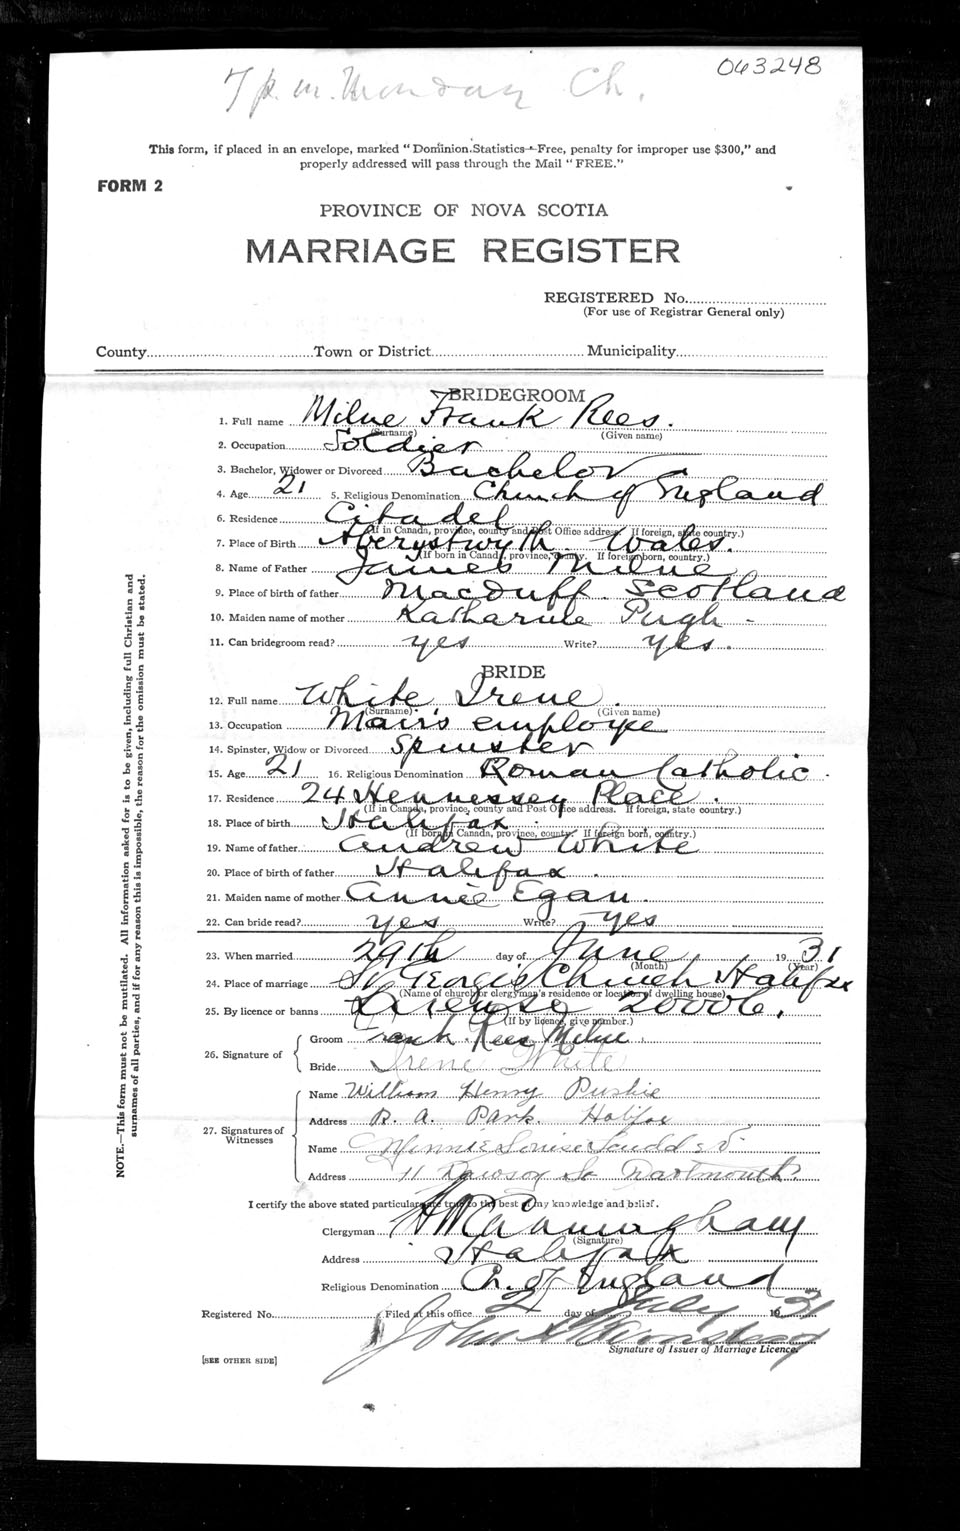 063248
7 p.m. Monday Ch.
This form, if placed in an envelope, marked "Dominion Statistics—Free, penalty for improper use $300," and
properly addressed will pass through the Mail "FREE."
FORM 2
PROVINCE OF NOVA SCOTIA
MARRIAGE REGISTER
REGISTERED No.
(For use of Registrar General only)
County Town or District Municipality
BRIDEGROOM
1. Full name Milne Frank Rees.
(Surname) (Given name)
2. Occupation Soldier
3. Bachelor, Widower or Divorced Bachelor
4. Age 21 5. Religious Denomination Church of England
6. Residence Citadel
(If in Canada, province, county and Post Office address. If foreign, state country.)
7. Place of Birth Aberystwyth. Wales.
(If born in Canada, province, county. If foreign born, country.)
8. Name of Father James Milne
9. Place of birth of father Macduff. Scotland
10. Maiden name of mother Katharine Pugh
11. Can bridegroom read? yes Write? yes.
BRIDE
12. Full name White Irene.
(Surname) (Given name)
13. Occupation Moir's employe
14. Spinster, Widow or Divorced Spinster
15. Age 21 16. Religious Denomination Roman Catholic.
17. Residence 24 Hennessey Place.
(If in Canada, province, county and Post Office address. If foreign, state country.)
18. Place of birth Halifax.
(If born in Canada, province, county. If foreign born, country.)
19. Name of father Andrew White
20. Place of birth of father Halifax.
21. Maiden name of mother Annie Egan.
22. Can bride read? yes Write? yes
23. When married 29th day of June 1931
(Month) (Year)
24. Place of marriage St Georges Church Halifax
(Name of church or clergyman's residence or location of dwelling house)
25. By licence or banns License 20006.
(If by licence, give number.)
26. Signature of
Groom Frank Rees Milne.
Bride Irene White
27. Signatures of Witnesses
Name William Henry
Address R. A. Park. Halifax
Name Minnie Louise
Address 11 Dawson St Dartmouth.
I certify the above stated particulars are true to the best of my knowledge and belief.
Clergyman H W Cunningham
(Signature)
Address Halifax
Religious Denomination Ch. of England
Registered No. Filed at this office 2 day of July 1931
John
Signature of Issuer of Marriage Licence.
[SEE OTHER SIDE]
NOTE.—This form must not be mutilated. All information asked for is to be given, including full Christian and
surnames of all parties, and if for any reason this is impossible, the reason for the omission must be stated.